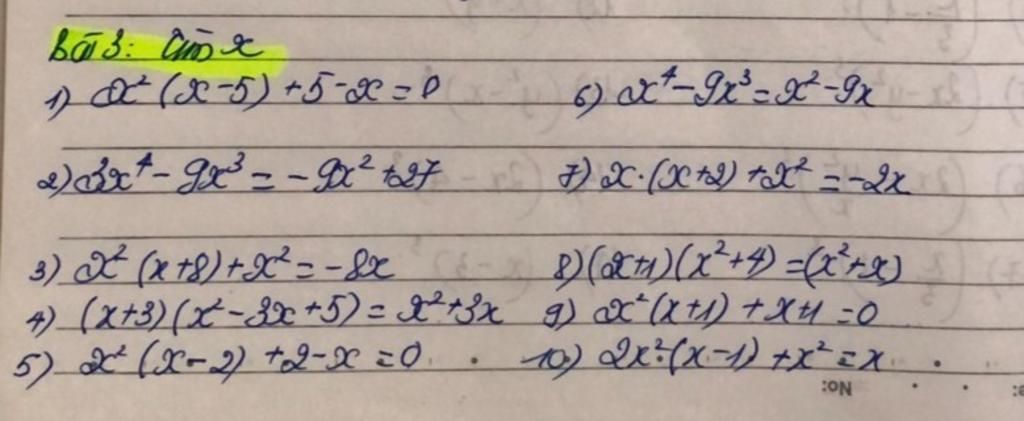 Bài 3: Tìm x
1) x² (x-5) + 5 - x = 0
6) x⁴ - 9x³ = x² - 9x
2) 3x⁴ - 9x³ = - 9x² + 27
7) x.(x+2) + x² = -2x
3) x² (x+8) + x² = -8x
8) (x+1) (x²+4) = (x²+x)
4) (x+3) (x² - 3x + 5) = x² + 3x
9) x² (x+1) + x+1 = 0
5) x² (x-2) + 2 - x = 0
10) 2x² (x-1) + x² = x
No: